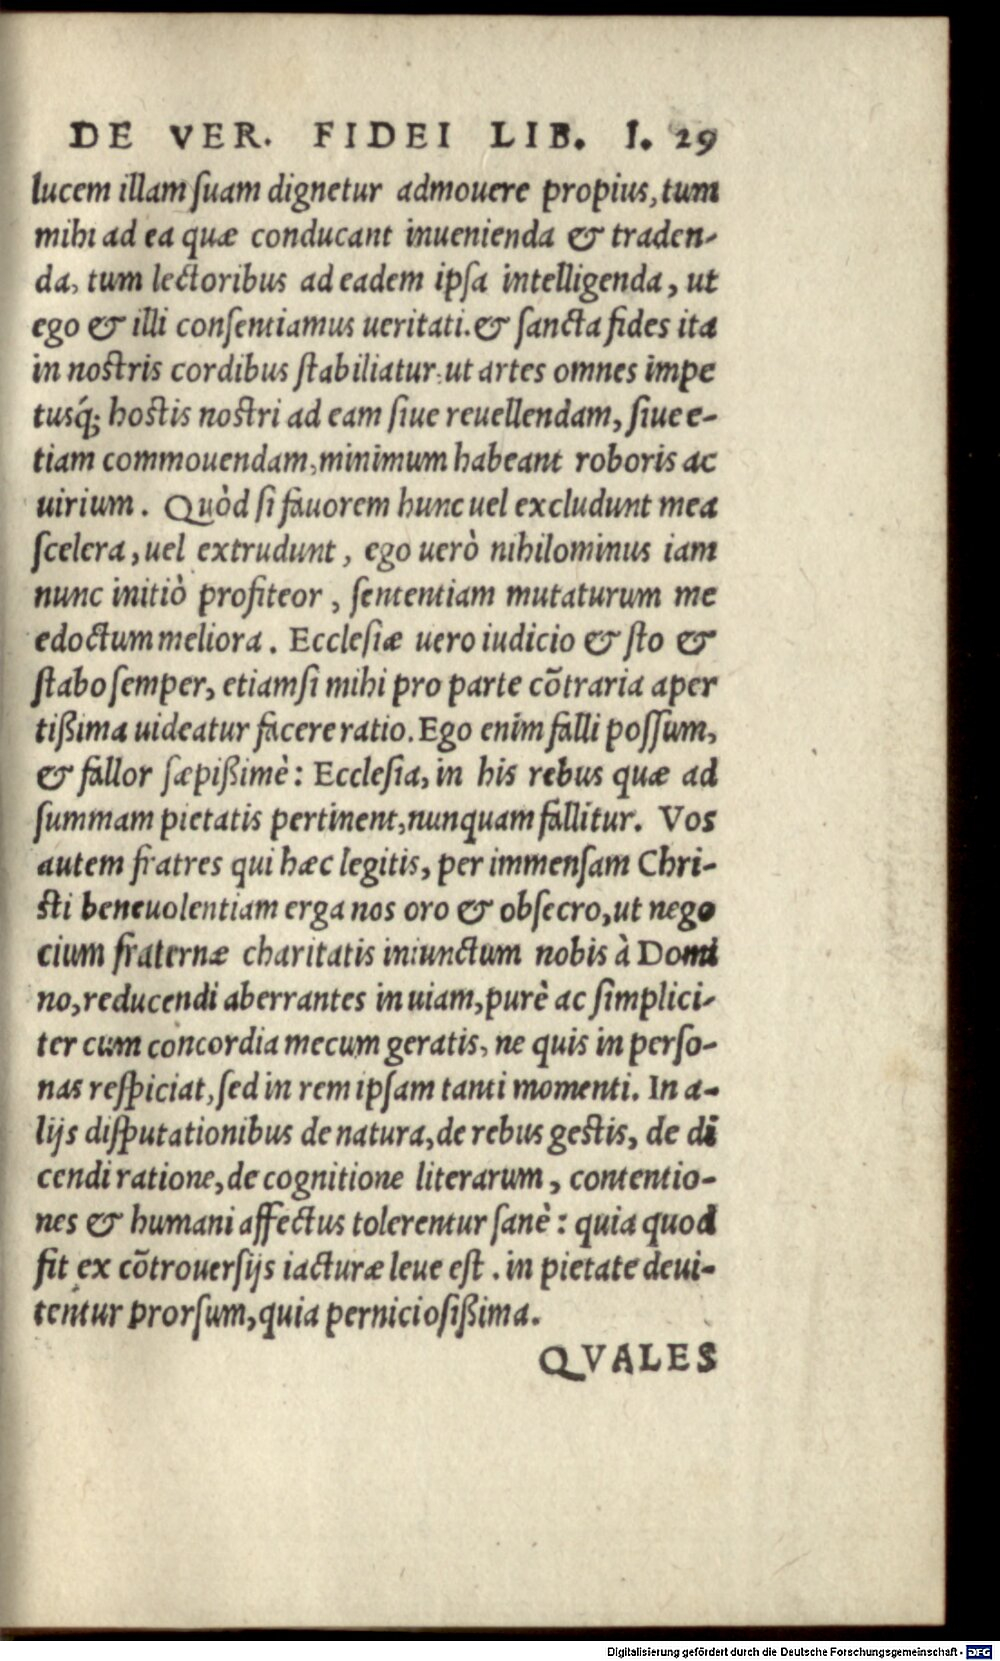 DE VER. FIDEI LIB. I. 29
lucem illam ſuam dignetur admouere propius, tum
mihi ad ea quæ conducant inuenienda & traden-
da, tum lectoribus ad eadem ipſa intelligenda, ut
ego & illi conſentiamus ueritati. & ſancta fides ita
in noſtris cordibus ſtabiliatur: ut artes omnes impe
tusq́; hoſtis noſtri ad eam ſiue reuellendam, ſiue e-
tiam commouendam, minimum habeant roboris ac
uirium. Quòd ſi fauorem hunc uel excludunt mea
ſcelera, uel extrudunt, ego uerò nihilominus iam
nunc initiò profiteor, ſententiam mutaturum me
edoctum meliora. Eccleſiæ uero iudicio & ſto &
ſtabo ſemper, etiamſi mihi pro parte cõtraria aper
tißima uideatur facere ratio. Ego enim falli poſſum,
& fallor ſæpißimè: Eccleſia, in his rebus quæ ad
ſummam pietatis pertinent, nunquam fallitur. Vos
autem fratres qui hæc legitis, per immenſam Chri-
ſti beneuolentiam erga nos oro & obſecro, ut nego
cium fraternæ charitatis iniunctum nobis à Domi
no, reducendi aberrantes in uiam, purè ac ſimplici-
ter cum concordia mecum geratis, ne quis in perſo-
nas reſpiciat, ſed in rem ipſam tanti momenti. In a-
lijs diſputationibus de natura, de rebus geſtis, de di
cendi ratione, de cognitione literarum, contentio-
nes & humani affectus tolerentur ſanè: quia quod
fit ex cõtrouerſijs iacturæ leue eſt. in pietate deui-
tentur prorſum, quia pernicioſißima.
QVALES
Digitalisierung gefördert durch die Deutsche Forschungsgemeinschaft - DFG